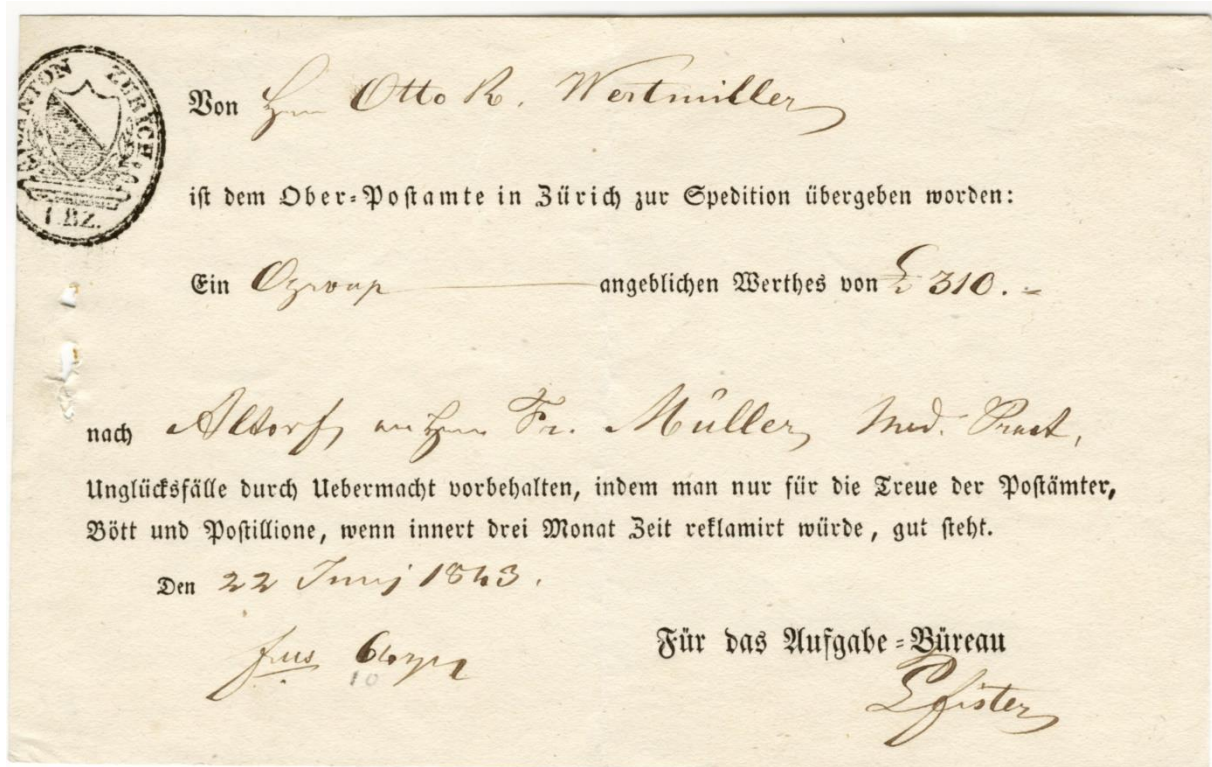 CANTON ZÜRICH
1 BZ.
Von Hrn Otto R. Wertmüller
ist dem Ober-Postamte in Zürich zur Spedition übergeben worden:
Ein angeblichen Werthes von £ 310.-
nach Altorf, an Hrn Fr. Müller, Med. Pract,
Unglücksfälle durch Uebermacht vorbehalten, indem man nur für die Treue der Postämter,
Bött und Postillione, wenn innert drei Monat Zeit reklamirt würde, gut steht.
Den 22 Junj 1843.
Für das Aufgabe-Büreau
10
Pfister